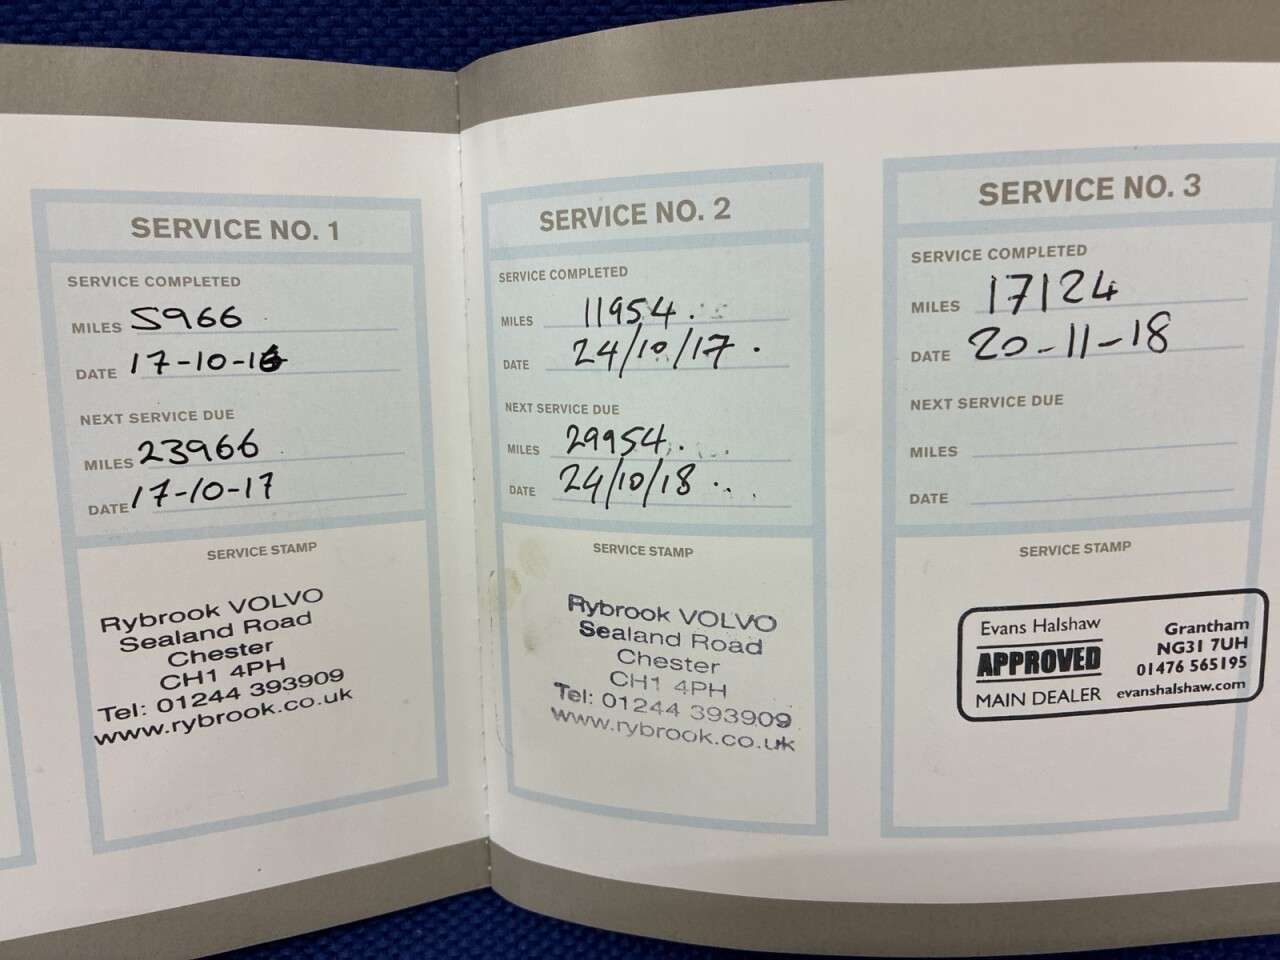 SERVICE NO. 1
SERVICE COMPLETED
MILES 5966
DATE 17-10-16
NEXT SERVICE DUE
MILES 23966
DATE 17-10-17
SERVICE STAMP
Rybrook VOLVO
Sealand Road
Chester
CH1 4PH
Tel: 01244 393909
www.rybrook.co.uk
SERVICE NO. 2
SERVICE COMPLETED
MILES 11954.
DATE 24/10/17.
NEXT SERVICE DUE
MILES 29954.
DATE 24/10/18
SERVICE STAMP
Rybrook VOLVO
Sealand Road
Chester
CH1 4PH
Tel: 01244 393909
www.rybrook.co.uk
SERVICE NO. 3
SERVICE COMPLETED
MILES 17124
DATE 20-11-18
NEXT SERVICE DUE
MILES
DATE
SERVICE STAMP
Evans Halshaw
APPROVED
MAIN DEALER
Grantham
NG31 7UH
01476 565195
evanshalshaw.com